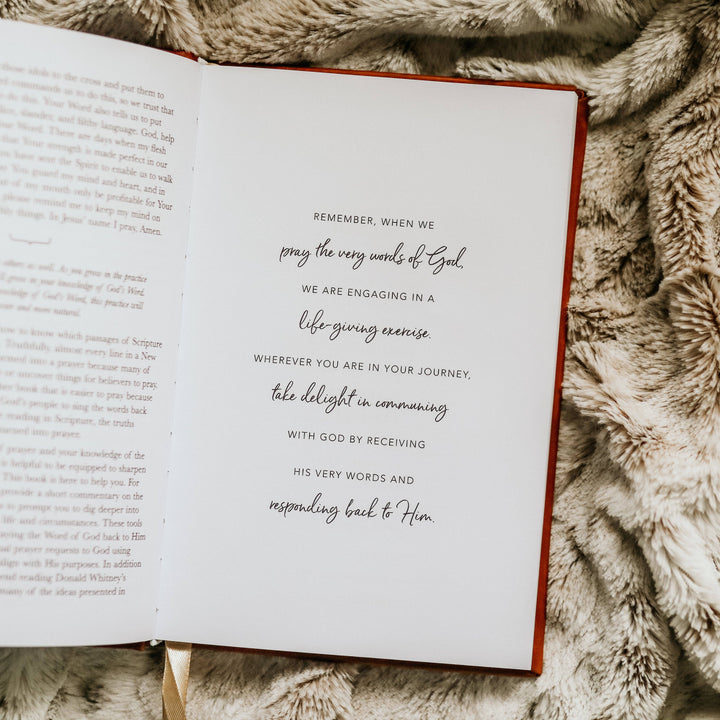 those idols to the cross and put them to
commands us to do this, so we trust that
do this. Your Word also tells us to put
slander, and filthy language. God, help
Your Word. There are days when my flesh
that Your strength is made perfect in our
you have sent the Spirit to enable us to walk
You guard my mind and heart, and in
of my mouth only be profitable for Your
please remind me to keep my mind on
things. In Jesus' name I pray, Amen.
others as well. As you grow in the practice
grow in your knowledge of God's Word,
knowledge of God's Word, this practice will
more and more natural.
how to know which passages of Scripture
Truthfully, almost every line in a New
turned into a prayer because many of
or uncover things for believers to pray.
other book that is easier to pray because
God's people to sing the words back
reading in Scripture, the truths
turned into prayer.
of prayer and your knowledge of the
is helpful to be equipped to sharpen
This book is here to help you. For
provide a short commentary on the
to prompt you to dig deeper into
life and circumstances. These tools
praying the Word of God back to Him
prayer requests to God using
align with His purposes. In addition
reading Donald Whitney's
many of the ideas presented in
REMEMBER, WHEN WE
pray the very words of God,
WE ARE ENGAGING IN A
life-giving exercise.
WHEREVER YOU ARE IN YOUR JOURNEY,
take delight in communing
WITH GOD BY RECEIVING
HIS VERY WORDS AND
responding back to Him.